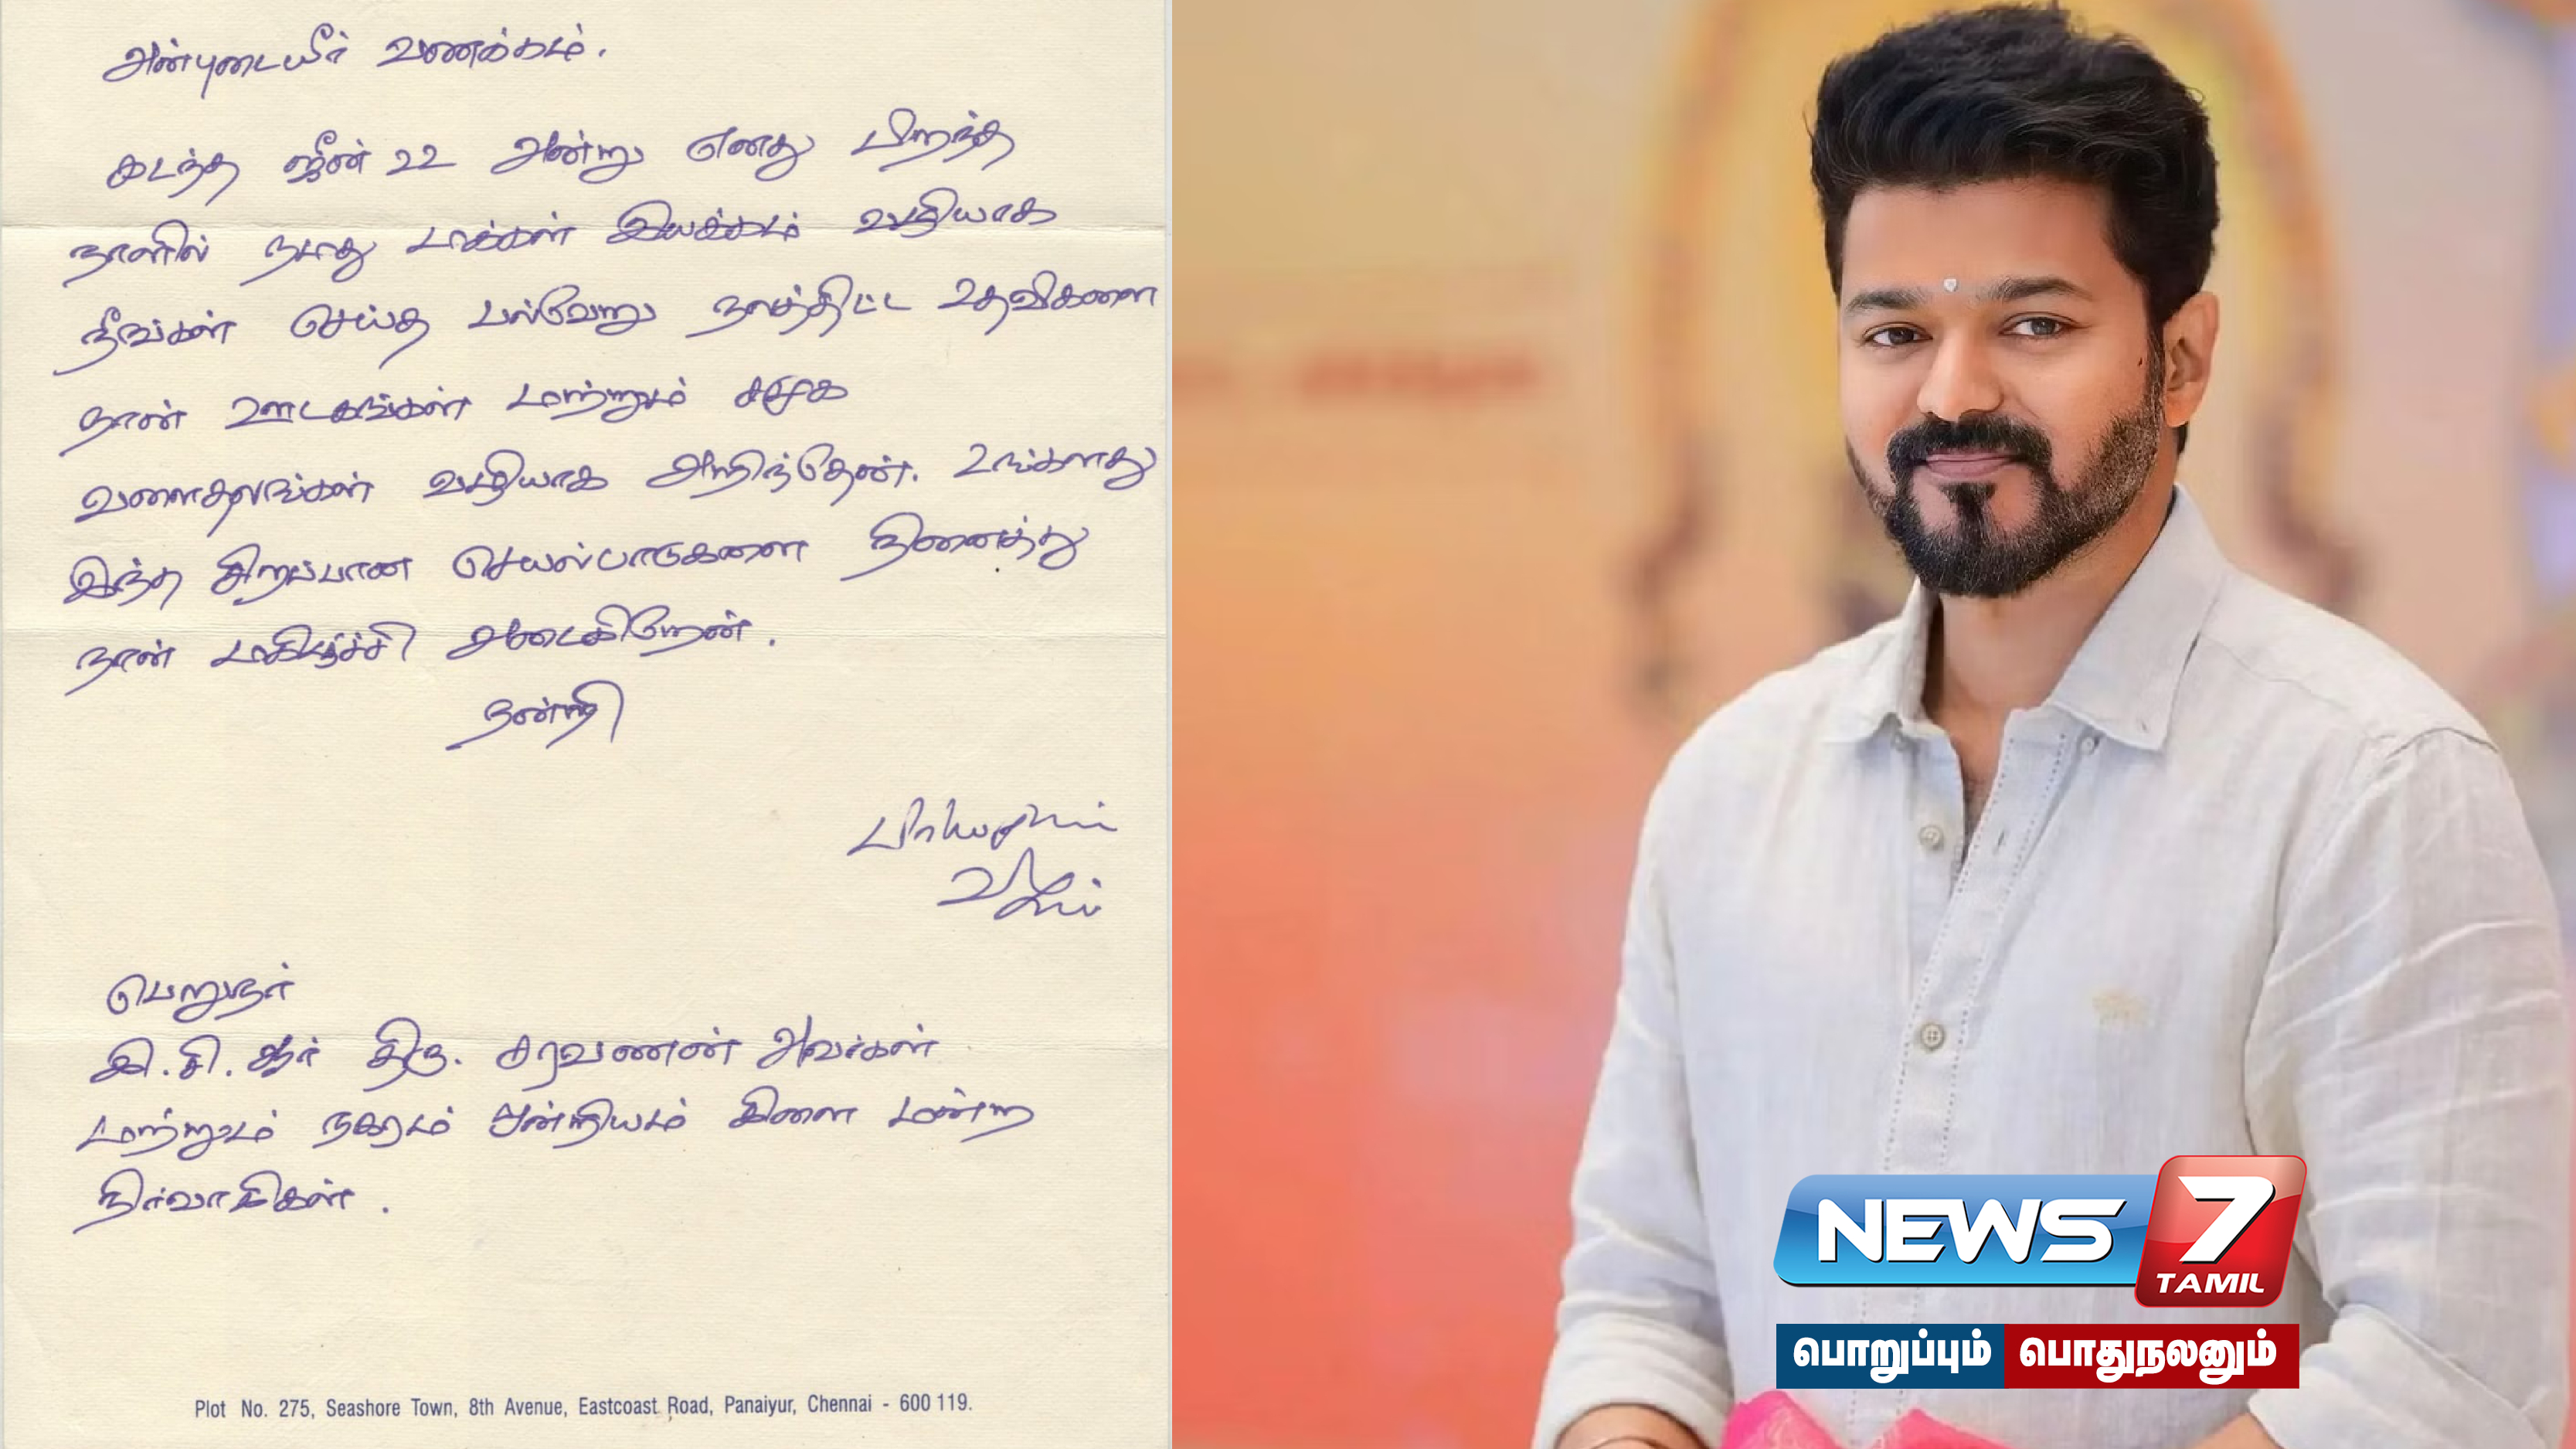 அன்புடையீர் வணக்கம்.
கடந்த ஜீன் 22 அன்று எனது பிறந்த
நாளில் நமது மக்கள் இயக்கம் வழியாக
நீங்கள் செய்த பல்வேறு நலத்திட்ட உதவிகளை
நான் ஊடகங்கள் மற்றும் சமூக
வளைதலங்கள் வழியாக அறிந்தேன். உங்களது
இந்த சிறப்பான செயல்பாடுகளை நினைத்து
நான் மகிழ்ச்சி அடைகிறேன்.
நன்றி
விஜய்
பெறுநர்
இ.சி.ஆர் திரு. சரவணன் அவர்கள்
மற்றும் நகரம் ஒன்றியம் கிளை மன்ற
நிர்வாகிகள்.
Plot No. 275, Seashore Town, 8th Avenue, Eastcoast Road, Panaiyur, Chennai - 600 119.
NEWS 7
TAMIL
பொறுப்பும் பொதுநலனும்